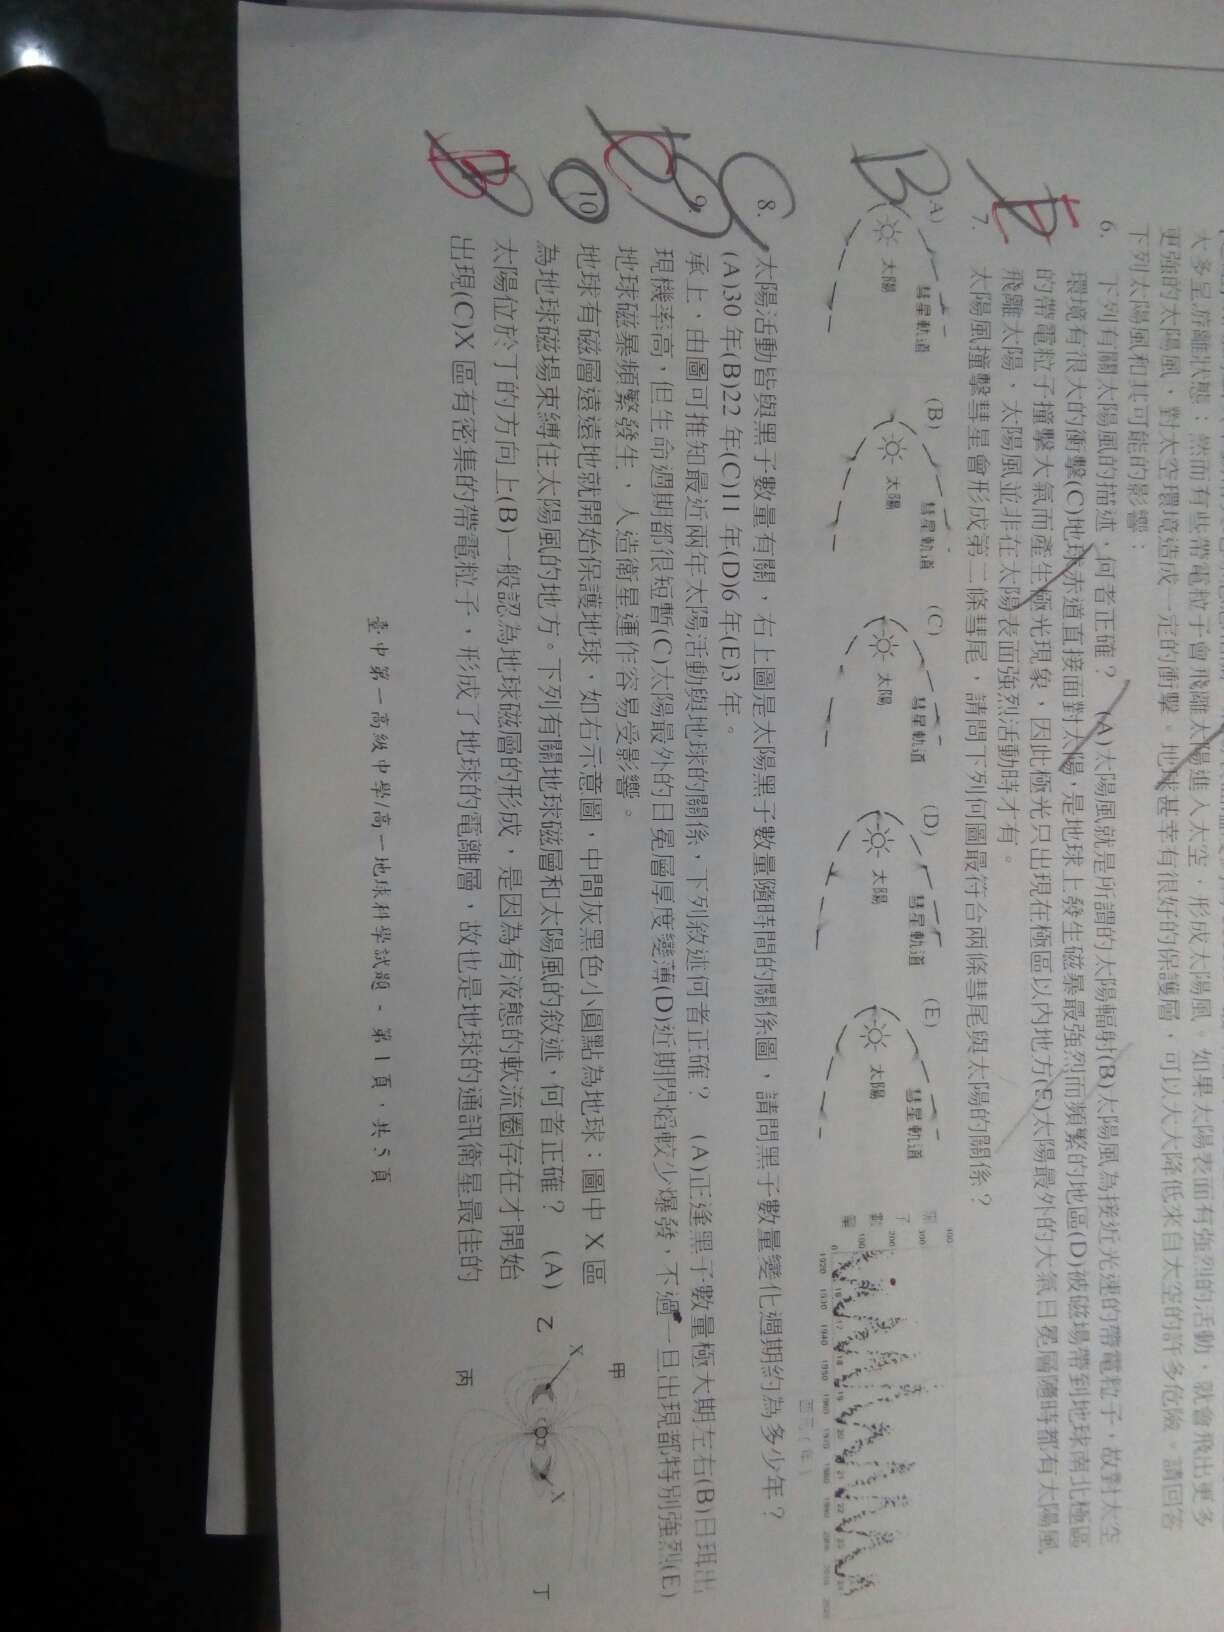 大多呈游離狀態；然而有些帶電粒子會飛離太陽進入太空，形成太陽風。如果太陽表面有強烈的活動，就會飛出更多
更強的太陽風，對太空環境造成一定的衝擊。地球甚幸有很好的保護層，可以大大降低來自太空的許多危險。請回答
下列太陽風和其可能的影響：
6. 下列有關太陽風的描述，何者正確？ (A)太陽風就是所謂的太陽輻射(B)太陽風為接近光速的帶電粒子，故對太空
環境有很大的衝擊(C)地球赤道直接面對太陽，是地球上發生磁暴最強烈而頻繁的地區(D)被磁場帶到地球南北極區
的帶電粒子撞擊大氣而產生極光現象，因此極光只出現在極區以內地方(E)太陽最外的大氣日冕層隨時都有太陽風
飛離太陽，太陽風並非在太陽表面強烈活動時才有。
E
7. 太陽風撞擊彗星會形成第二條彗尾，請問下列何圖最符合兩條彗尾與太陽的關係？
B
(A) 彗星軌道 太陽
(B) 彗星軌道 太陽
(C) 彗星軌道 太陽
(D) 彗星軌道 太陽
(E) 彗星軌道 太陽
200
100
0
1920 1930 1940 1950 1960 1970 1980 1990
16 17 18 19 20 21 22 23
西元(年)
C
8. 太陽活動皆與黑子數量有關，右上圖是太陽黑子數量隨時間的關係圖，請問黑子數量變化週期約為多少年？
(A)30 年(B)22 年(C)11 年(D)6 年(E)3 年。
C
9. 承上，由圖可推知最近兩年太陽活動與地球的關係，下列敘述何者正確？ (A)正逢黑子數量極大期左右(B)日珥出
現機率高，但生命週期都很短暫(C)太陽最外的日冕層厚度變薄(D)近期閃焰較少爆發，不過一旦出現都特別強烈(E)
地球磁暴頻繁發生，人造衛星運作容易受影響。
B
10 地球有磁層遠遠地就開始保護地球，如右示意圖，中間灰黑色小圓點為地球；圖中 X 區
為地球磁場束縛住太陽風的地方。下列有關地球磁層和太陽風的敘述，何者正確？ (A)
太陽位於丁的方向上(B)一般認為地球磁層的形成，是因為有液態的軟流圈存在才開始
出現(C)X 區有密集的帶電粒子，形成了地球的電離層，故也是地球的通訊衛星最佳的
甲
乙
丙
丁
X
X
臺中第一高級中學/高一地球科學試題－第 1 頁，共 5 頁